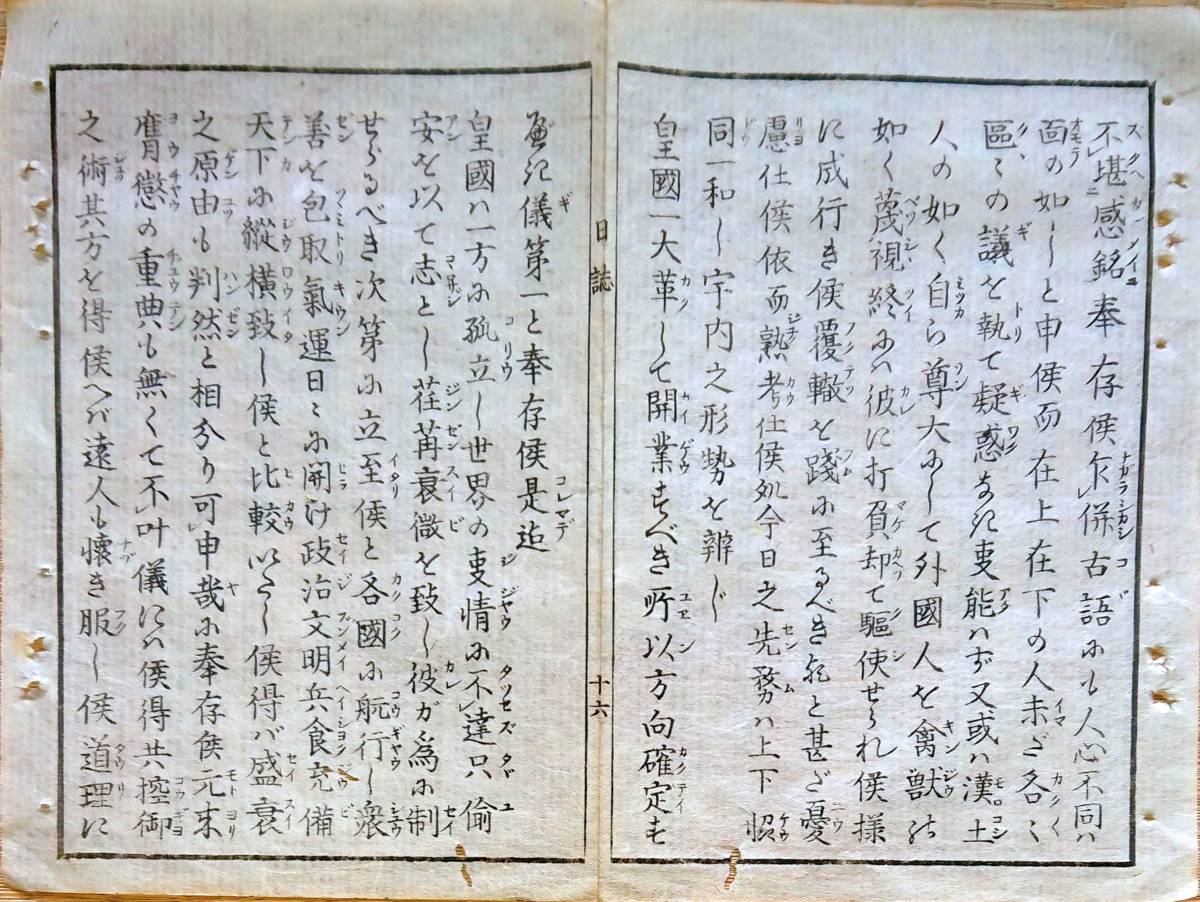 不堪感銘奉存候乍併古語にも人心不同ハ
面の如しと申候而在上在下の人未ざ各〻
區〻の議を執て疑惑なき事能ハず又或ハ漢土
人の如く自ら尊大にして外國人を禽獸の
如く蔑視終にハ彼に打負却て驅使せられ候様
に成行き候覆轍を踐に至るべきやと甚ざ憂
慮仕候依而熟考仕候処今日之先務ハ上下恊
同一和し宇内之形勢を辨じ
皇國一大革して開業すべき所以方向確定す
日誌
十六
べき儀第一と奉存候是迄
皇國ハ一方に孤立し世界の事情に不達只偸
安を以て志とし荏苒衰微を致し彼が為に制
せらるべき次第に立至候と各國に航行し衆
善を包取氣運日〻に開け政治文明兵食充備
天下に縱横致し候と比較いたし候得バ盛衰
之原由も判然と相分り可申哉に奉存候元来
膺懲の重典も無くて不叶儀にハ候得共控御
之術其方を得候ヘバ遠人も懐き服し候道理に